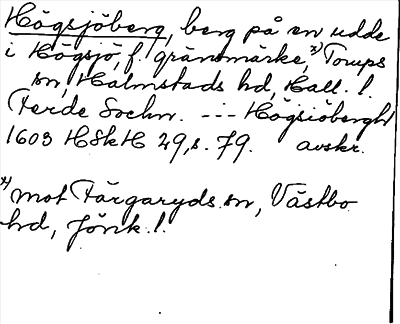 Högsjöberg, berg på en udde
i Högsjö, f. gränsmärke, x) Torups
sn, Halmstads hd, Hall. l.
Ferde Sochn. --- Högsiöberght
1603 HSkH 29, s. 79. avskr.
x) mot Färgaryds sn, Västbo
hd, Jönk. l.